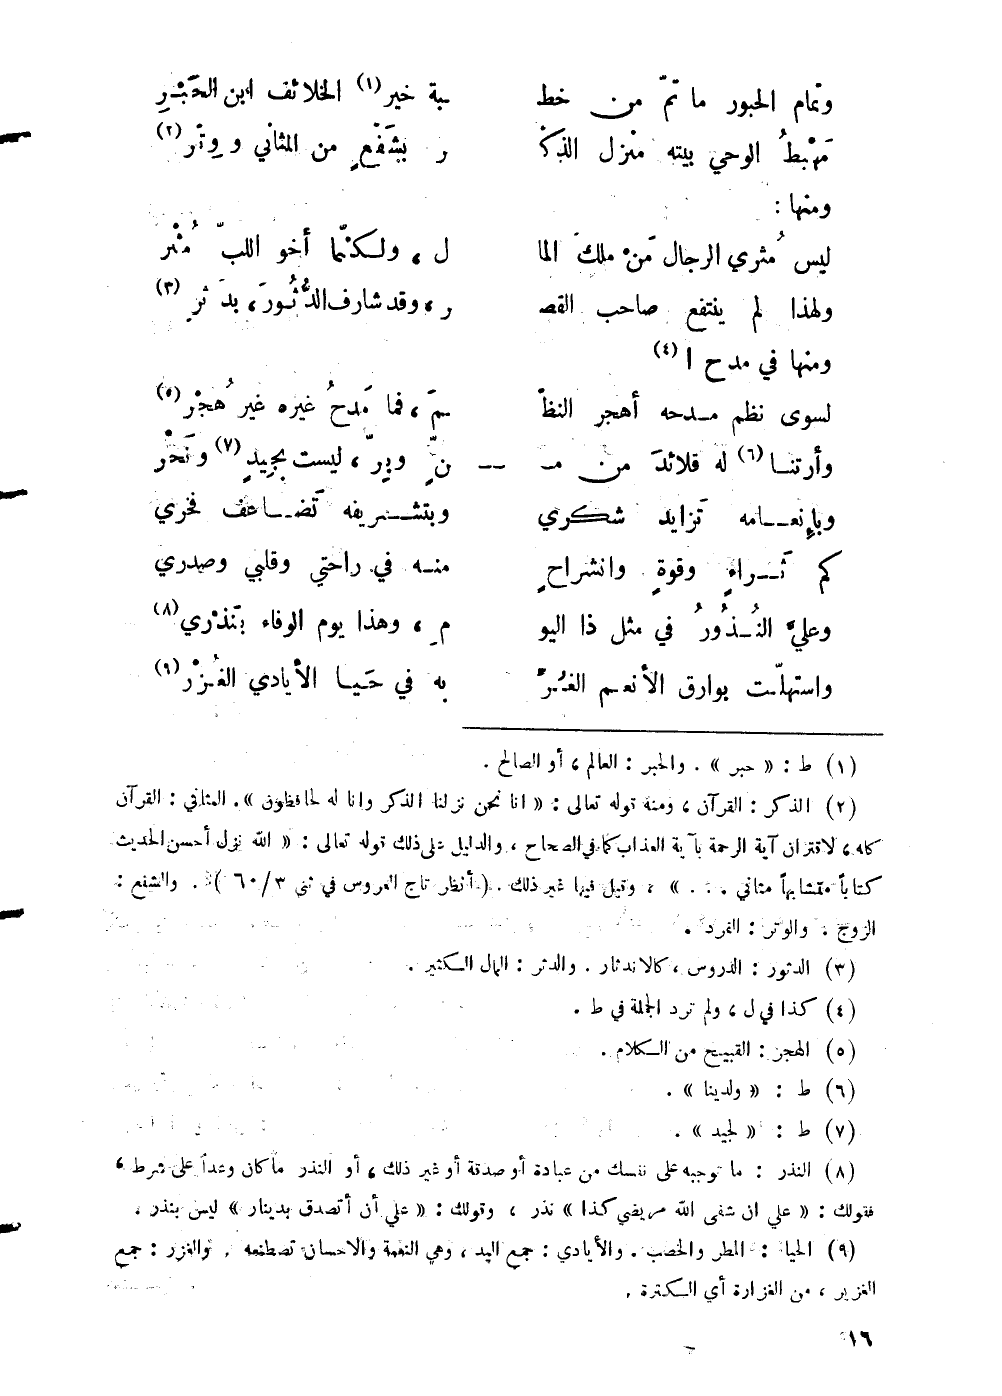 وتمام الحبور ما تمّ من خط بة خير (١) الخلائف ابن الحَبْرِ
مَهْبطُ الوحي بيته منزل الذكْ ر بشَفْعٍ من المثاني ووِتْر (٢)
ومنها :
ليس مُثري الرجال مَنْ ملكَ الما ل ، ولكنّما أخو اللبّ مُثْرِ
ولهذا لم ينتفع صاحب القصـ ر ، وقد شارف الدُّثُورَ ، بدَثْرِ (٣)
ومنها في مدح ا (٤)
لسوى نظم مدحه أهجر النظـ ـمَ ، فما مَدحُ غيره غير هُجْر (٥)
وأرتنا (٦) له قلائدَ من مـ -- ـنٍّ وبِرٍّ ، ليست بجِيدٍ (٧) ونَحْر
وبإنعامه تزايد شكري وبتشريفه تَضاعف فخري
كم ثَراءٍ وقوةٍ وانشراحٍ منه في راحتي وقلبي وصدري
وعليَّ النُذُورُ في مثل ذا اليو مِ ، وهذا يوم الوفاء بنَذْري (٨)
واستهلّت بوارق الأنعم الغُرِّ به في حَيا الأيادي الغُزْر (٩)
(١) ط : « حبر » . والحبر : العالم ، أو الصالح .
(٢) الذكر : القرآن ، ومنه قوله تعالى : « انا نحن نزلنا الذكر وانا له لحافظون » . المثاني : القرآن
كله ، لاقتران آية الرحمة بآية العذاب كما في الصحاح ، والدليل على ذلك قوله تعالى : « الله نزل أحسن الحديث
كتاباً متشابهاً مثاني . . . » ، وقيل فيها غير ذلك . ( أنظر تاج العروس في ثنى ٦٠/٣ ) . والشفع :
الزوج . والوتر : الفرد .
(٣) الدثور : الدروس ، كالاندثار . والدثر : المال الكثير .
(٤) كذا في ل ، ولم ترد الجملة في ط .
(٥) الهجر : القبيح من الكلام .
(٦) ط : « ولدينا » .
(٧) ط : « لجيد » .
(٨) النذر : ما توجبه على نفسك من عبادة أو صدقة أو غير ذلك ، أو النذر ما كان وعداً على شرط ،
فقولك : « علي ان شفى الله مريضي كذا » نذر ، وقولك : « علي أن أتصدق بدينار » ليس بنذر .
(٩) الحيا : المطر والخصب . والأيادي : جمع اليد ، وهي النعمة والاحسان تصطنعه . والغزر : جمع
الغزير ، من الغزارة أي الكثرة .
١٦